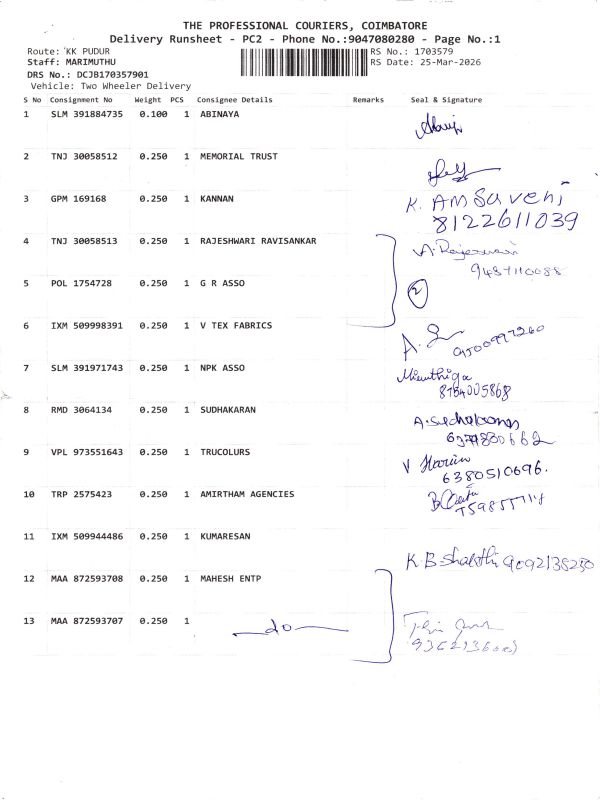 THE PROFESSIONAL COURIERS, COIMBATORE
Delivery Runsheet - PC2 - Phone No.:9047080280 - Page No.:1
Route: KK PUDUR
RS No.: 1703579
Staff: MARIMUTHU
RS Date: 25-Mar-2026
DRS No.: DCJB170357901
Vehicle: Two Wheeler Delivery
S No Consignment No Weight PCS Consignee Details Remarks Seal & Signature
1 SLM 391884735 0.100 1 ABINAYA
2 TNJ 30058512 0.250 1 MEMORIAL TRUST
3 GPM 169168 0.250 1 KANNAN K. AMSAVENI
8122611039
4 TNJ 30058513 0.250 1 RAJESHWARI RAVISANKAR
5 POL 1754728 0.250 1 G R ASSO 2
6 IXM 509998391 0.250 1 V TEX FABRICS
7 SLM 391971743 0.250 1 NPK ASSO
8 RMD 3064134 0.250 1 SUDHAKARAN
9 VPL 973551643 0.250 1 TRUCOLURS
6380510696.
10 TRP 2575423 0.250 1 AMIRTHAM AGENCIES
11 IXM 509944486 0.250 1 KUMARESAN
K.B Shakthi 9092138250
12 MAA 872593708 0.250 1 MAHESH ENTP
13 MAA 872593707 0.250 1 do